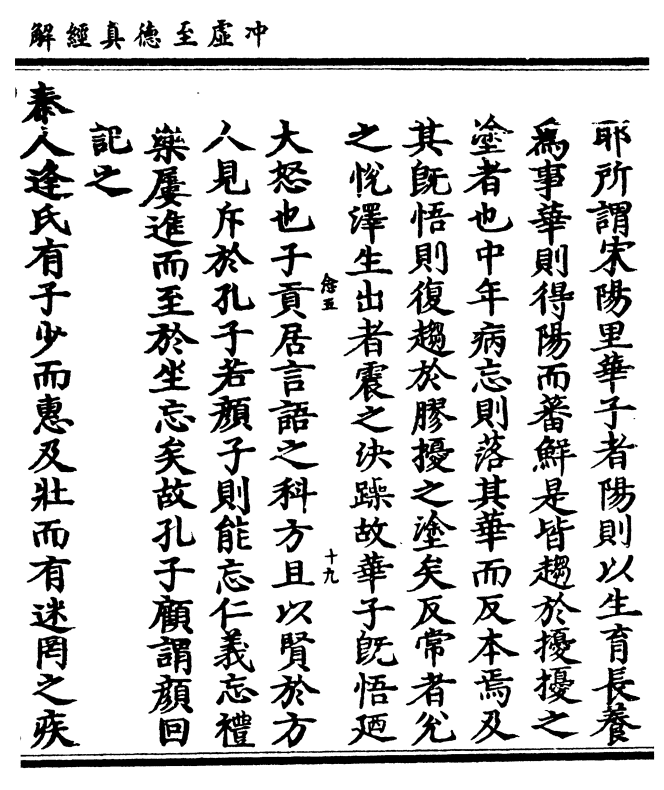 冲虛至德真經解
耶所謂宋陽里華子者陽則以生育長養
爲事華則得陽而蕃鮮是皆趨於擾擾之
塗者也中年病忘則落其華而反本焉及
其旣悟則復趨於膠擾之塗矣反常者兊
之恱澤生出者震之決躁故華子旣悟廼
大怒也子貢居言語之科方且以賢於方
念五
十九
人見斥於孔子若顔子則能忘仁義忘禮
樂屢進而至於坐忘矣故孔子顧謂顔回
記之
秦人逢氏有子少而惠及壯而有迷罔之疾